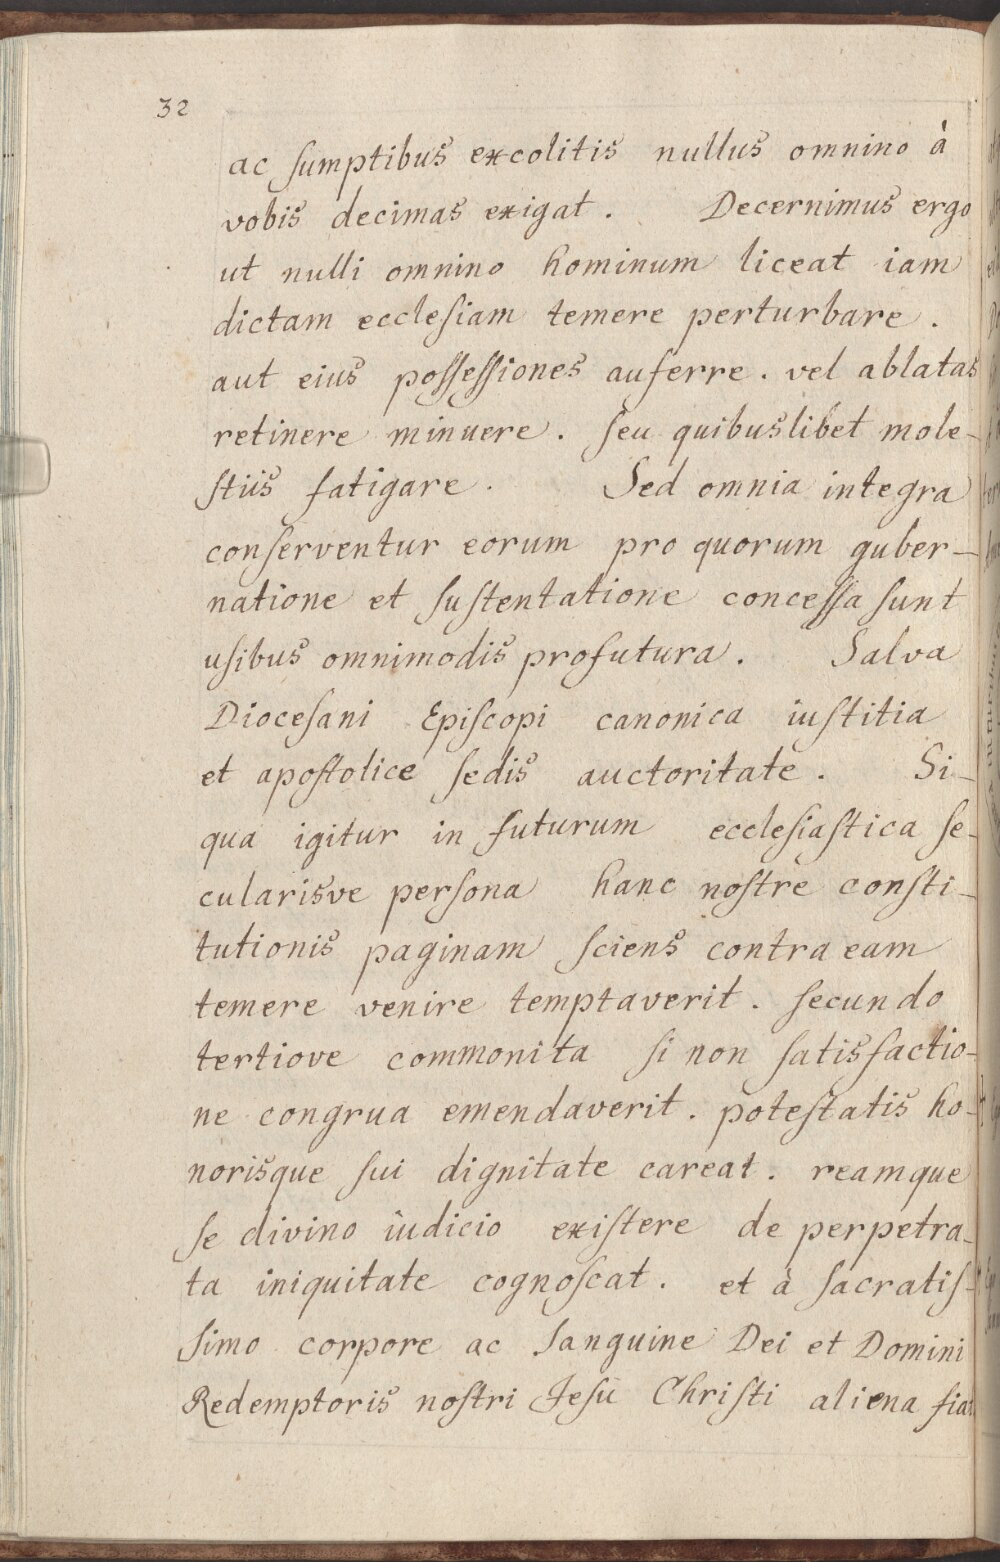 32
ac ſumptibus excolitis nullus omnino à
vobis decimas exigat . Decernimus ergo
ut nulli omnino hominum liceat iam
dictam eccleſiam temere perturbare .
aut eius poſſeſſiones auferre . vel ablatas
retinere minuere . ſeu quibuslibet mole-
ſtiis fatigare . Sed omnia integra
conſerventur eorum pro quorum guber-
natione et ſuſtentatione conceſſa ſunt
uſibus omnimodis profutura . Salva
Dioceſani Epiſcopi canonica iuſtitia
et apoſtolice ſedis auctoritate . Si-
qua igitur in futurum eccleſiaſtica ſe-
cularisve perſona hanc noſtrè conſti-
tutionis paginam ſciens contra eam
temere venire temptaverit . ſecundo
tertiove commonita ſi non ſatisfactio-
ne congrua emendaverit . poteſtatis ho-
norisque ſui dignitate careat . reamque
ſe divino iudicio exiſtere de perpetra-
ta iniquitate cognoſcat . et à ſacratiſ-
ſimo corpore ac Sanguine Dei et Domini
Redemptoris noſtri Jeſu Chriſti aliena fiat